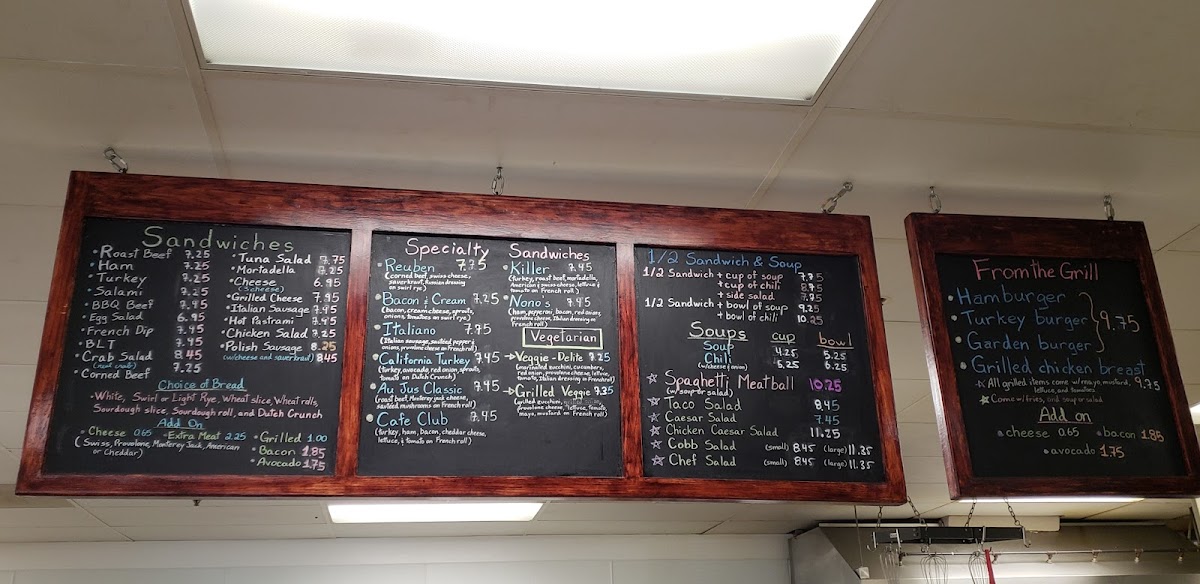 Sandwiches
• Roast Beef 7.25
• Ham 7.25
• Turkey 7.25
• Salami 7.25
• BBQ Beef 7.45
• Egg Salad 6.95
• French Dip 7.45
• BLT 7.45
• Crab Salad 8.45
• Corned Beef 7.25
• Tuna Salad 7.75
• Mortadella 7.25
• Cheese 6.95
(3 cheese)
• Grilled Cheese 7.95
• Italian Sausage 7.45
• Hot Pastrami 7.45
• Chicken Salad 7.25
• Polish Sausage 8.25
(w/cheese and sauerkraut) 8.45
Choice of Bread
• White, Swirl or Light Rye, Wheat slice, Wheat rolls,
Sourdough slice, Sourdough roll, and Dutch Crunch
Add On
• Cheese 0.65 • Extra Meat 2.25
(Swiss, Provolone, Monterey Jack, American
or Cheddar)
• Grilled 1.00
• Bacon 1.85
• Avocado 1.75
Specialty Sandwiches
• Reuben 7.75
(corned beef, swiss cheese,
sauerkraut, Russian dressing
on swirl rye)
• Bacon & Cream 7.25
(bacon, cream cheese, sprouts,
onions, tomatoes on swirl rye)
• Italiano 7.75
(Italian sausage, sautéed pepper &
onions, provolone cheese on French roll)
• California Turkey 7.45
(turkey, avocado, red onion, sprouts,
tomato on Dutch Crunch)
• Au Jus Classic 7.45
(roast beef, Monterey jack cheese,
sautéed, mushrooms on French roll)
• Cafe Club 7.45
(turkey, ham, bacon, cheddar cheese,
lettuce, & tomato on French roll)
• Killer 7.45
(turkey, roast beef, mortadella,
American & swiss cheese, lettuce &
tomato on French roll)
• Nono's 7.45
(ham, pepperoni, bacon, red onions,
provolone cheese, Italian dressing on
French roll)
Vegetarian
Veggie-Delite 7.25
(marinated zucchini, cucumbers,
red onion, provolone cheese, lettuce,
tomato, Italian dressing on French roll)
Grilled Veggie 7.35
provolone cheese, lettuce, tomato,
mayo, mustard on French roll)
1/2 Sandwich & Soup
1/2 Sandwich + cup of soup 7.75
+ cup of chili
+ side salad 7.95
1/2 Sandwich + bowl of soup 9.25
+ bowl of chili 10.25
Soups cup bowl
Soup 4.25 5.25
Chili 5.25 6.25
(w/cheese & onion)
☆ Spaghetti, Meatball 10.25
(w/soup or salad)
☆ Taco Salad 8.45
☆ Caesar Salad 7.45
☆ Chicken Caesar Salad 11.25
☆ Cobb Salad (small) 8.45 (large) 11.35
☆ Chef Salad (small) 8.45 (large) 11.35
From the Grill
• Hamburger
• Turkey burger 9.75
• Garden burger
• Grilled chicken breast
☆ All grilled items come w/ mayo, mustard, 9.35
lettuce, and tomatoes
☆ Come w/ fries, and soup or salad
Add On
• cheese 0.65 • bacon 1.85
• avocado 1.75